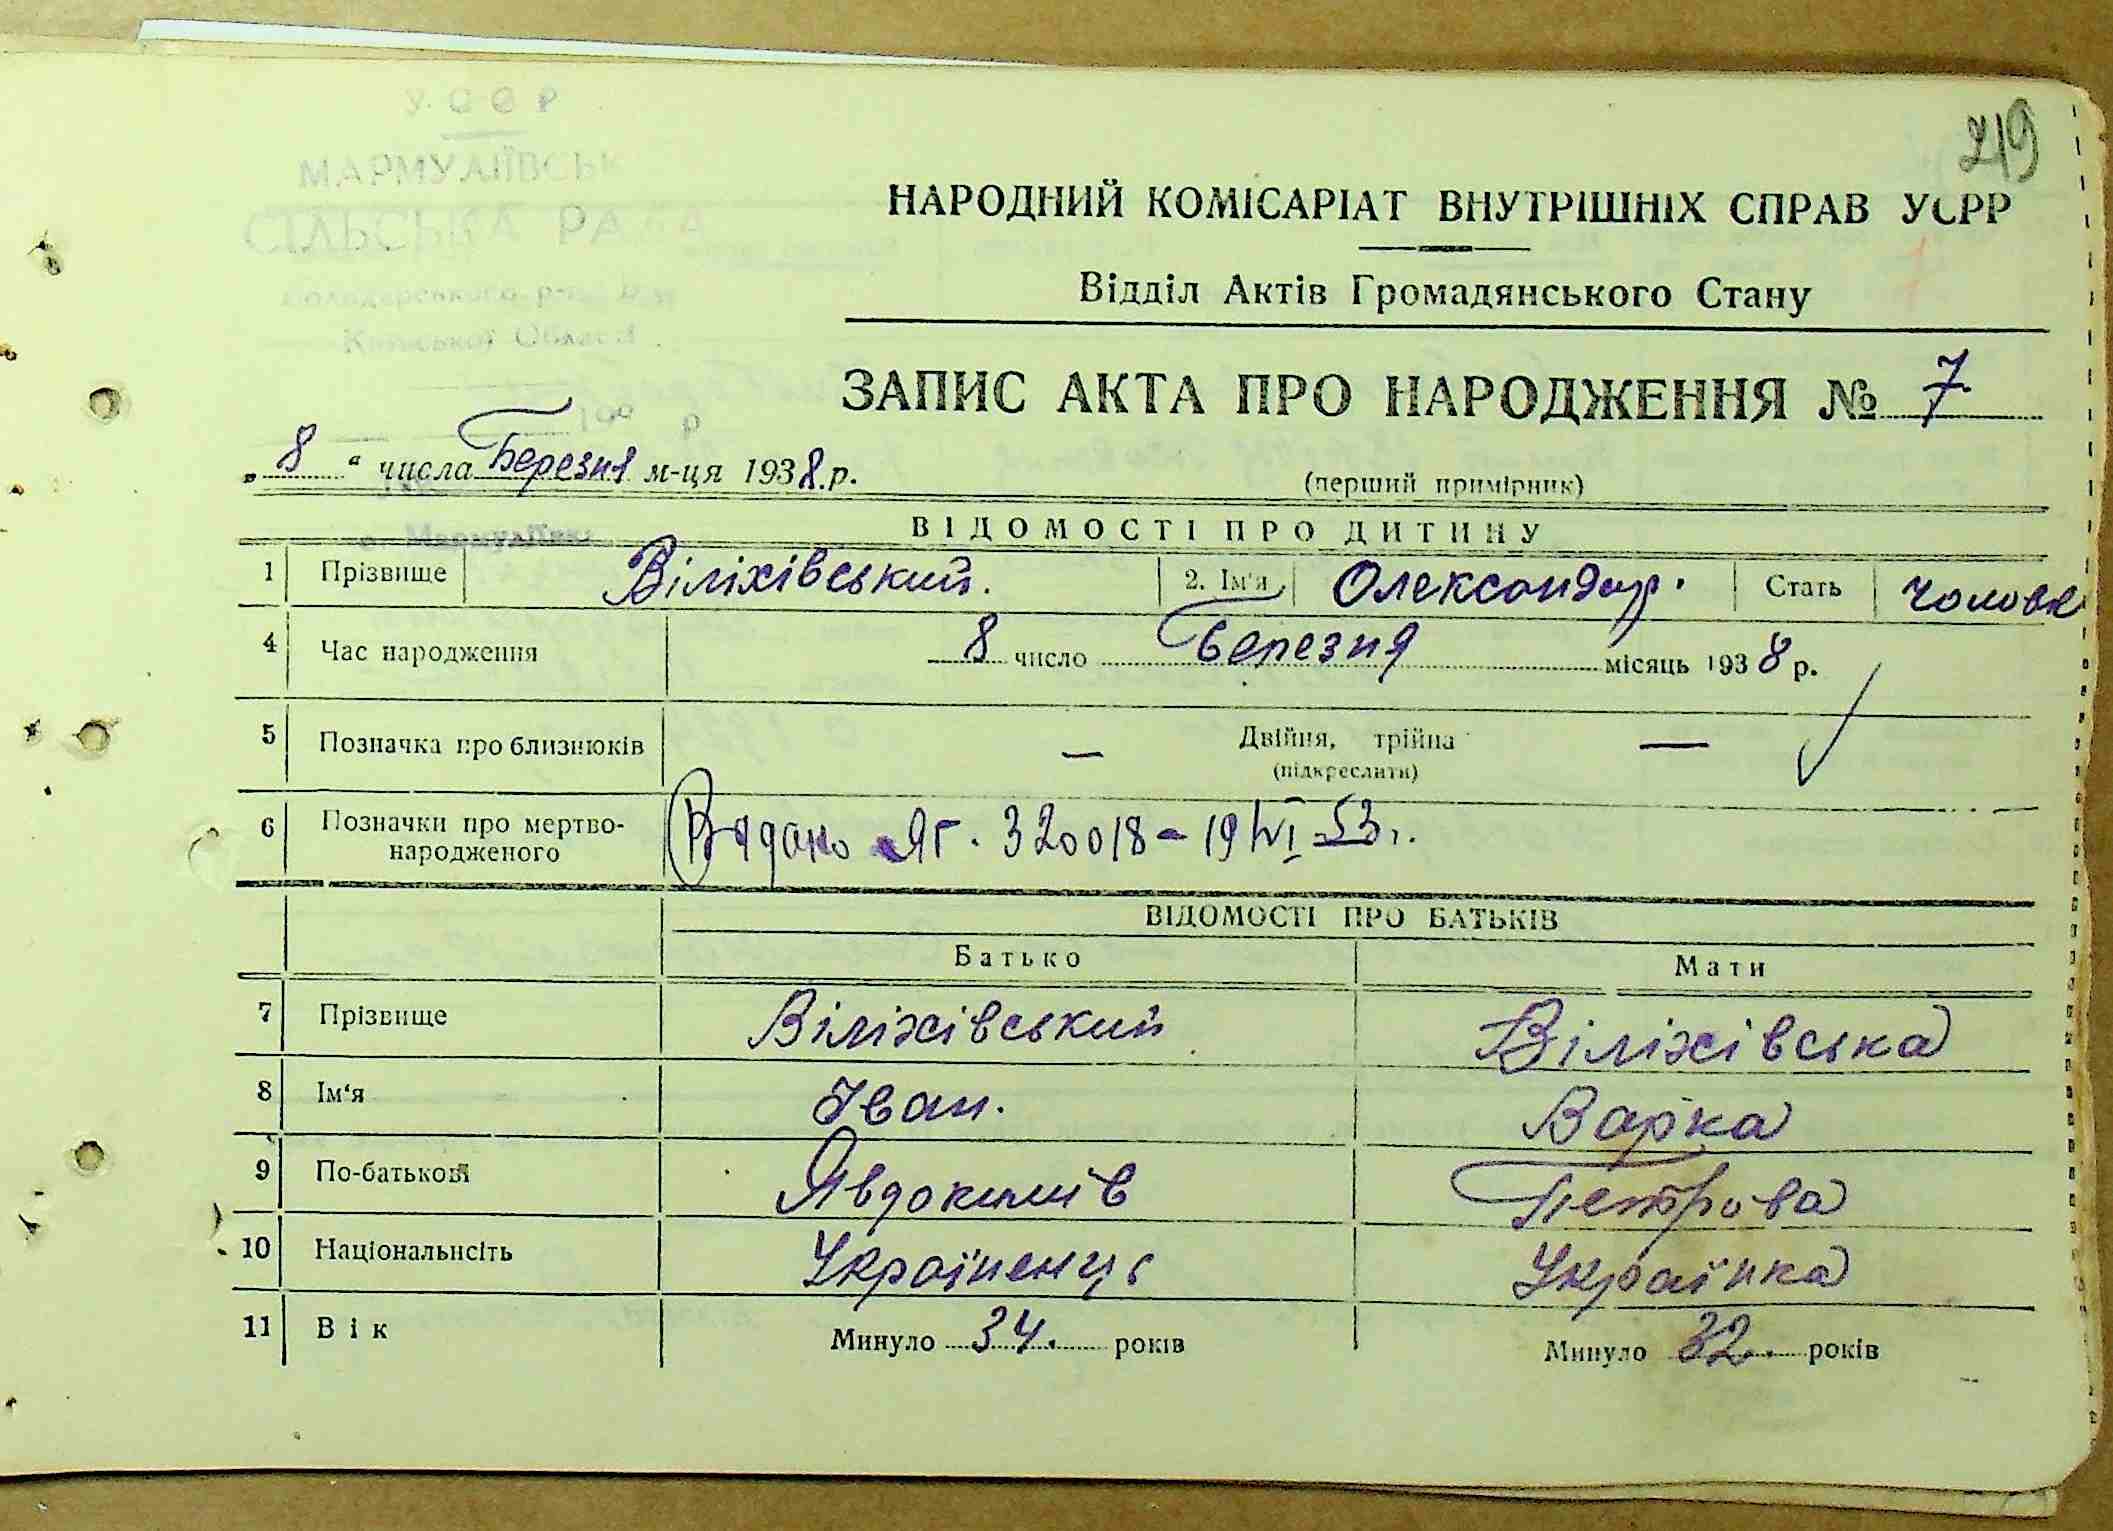 У С С Р
МАРМУЛІЇВСЬК
СІЛЬСЬКА РАДА
Володарського р-ну
Київської Області
219
НАРОДНИЙ КОМІСАРІАТ ВНУТРІШНІХ СПРАВ УСРР
Відділ Актів Громадянського Стану
ЗАПИС АКТА ПРО НАРОДЖЕННЯ № 7
„ 8 “ числа Березня м-ця 1938 р.
(перший примірник)
ВІДОМОСТІ ПРО ДИТИНУ
1 Прізвище Віліхівський. 2. Ім'я Олександр. Стать чоловк
4 Час народження 8 число Березня місяць 1938 р.
5 Позначка про близнюків — Двійня, трійна —
(підкреслити)
6 Позначки про мертво-
народженого Видано ЯГ. 320018 - 19/VI-53 г.
ВІДОМОСТІ ПРО БАТЬКІВ
Батько Мати
7 Прізвище Віліхівський Віліхівська
8 Ім‘я Іван. Варка
9 По-батькові Явдокимів Петрова
10 Національнсіть Українець Українка
11 Вік Минуло 34. років Минуло 32. років